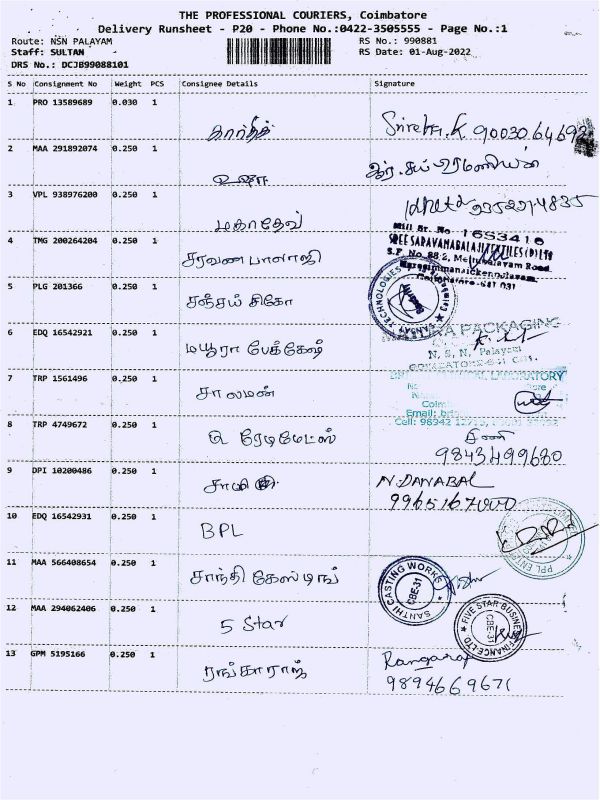 THE PROFESSIONAL COURIERS, Coimbatore
Delivery Runsheet - P20 - Phone No.:0422-3505555 - Page No.:1
Route: NSN PALAYAM RS No.: 990881
Staff: SULTAN RS Date: 01-Aug-2022
DRS No.: DCJB99088101
S No Consignment No Weight PCS Consignee Details Signature
1 PRO 13589689 0.030 1
கார்த்திக்
2 MAA 291892074 0.250 1
உஷா
3 VPL 938976200 0.250 1
மகாதேவ்
Mill Sr. No 1653416
4 TMG 200264204 0.250 1
SREE SARAVANABALAJI TEXTILES (P) LTD
சரவண பாலாஜி
S.F. No. 88/2, Mettupalayam Road
Narasimmanaickenpalayam,
Coimbatore-641 031
5 PLG 201366 0.250 1
சஞ்சய் சிகோ
SANSAY TECHNOLOGIES
6 EDQ 16542921 0.250 1
PACKAGING
மயூரா பேக்கேஜ்
N. S. N. Palayam
7 TRP 1561496 0.250 1
LABORATORY
சாலமன்
Email:
8 TRP 4749672 0.250 1
Cell: 98942
ரேடிமேட்ஸ்
9843499680
9 DPI 10200486 0.250 1
சாமி
N. DANABAL
10 EDQ 16542931 0.250 1
BPL
PPL
11 MAA 566408654 0.250 1
சாந்தி கேஸ்டிங்
SANTHI CASTING WORKS
CBE-31
12 MAA 294062406 0.250 1
5 Star
FIVE STAR BUSINESS FINANCE LTD
CBE-31
13 GPM 5195166 0.250 1
ரங்காராஜ்
Rangaraj
9894669671